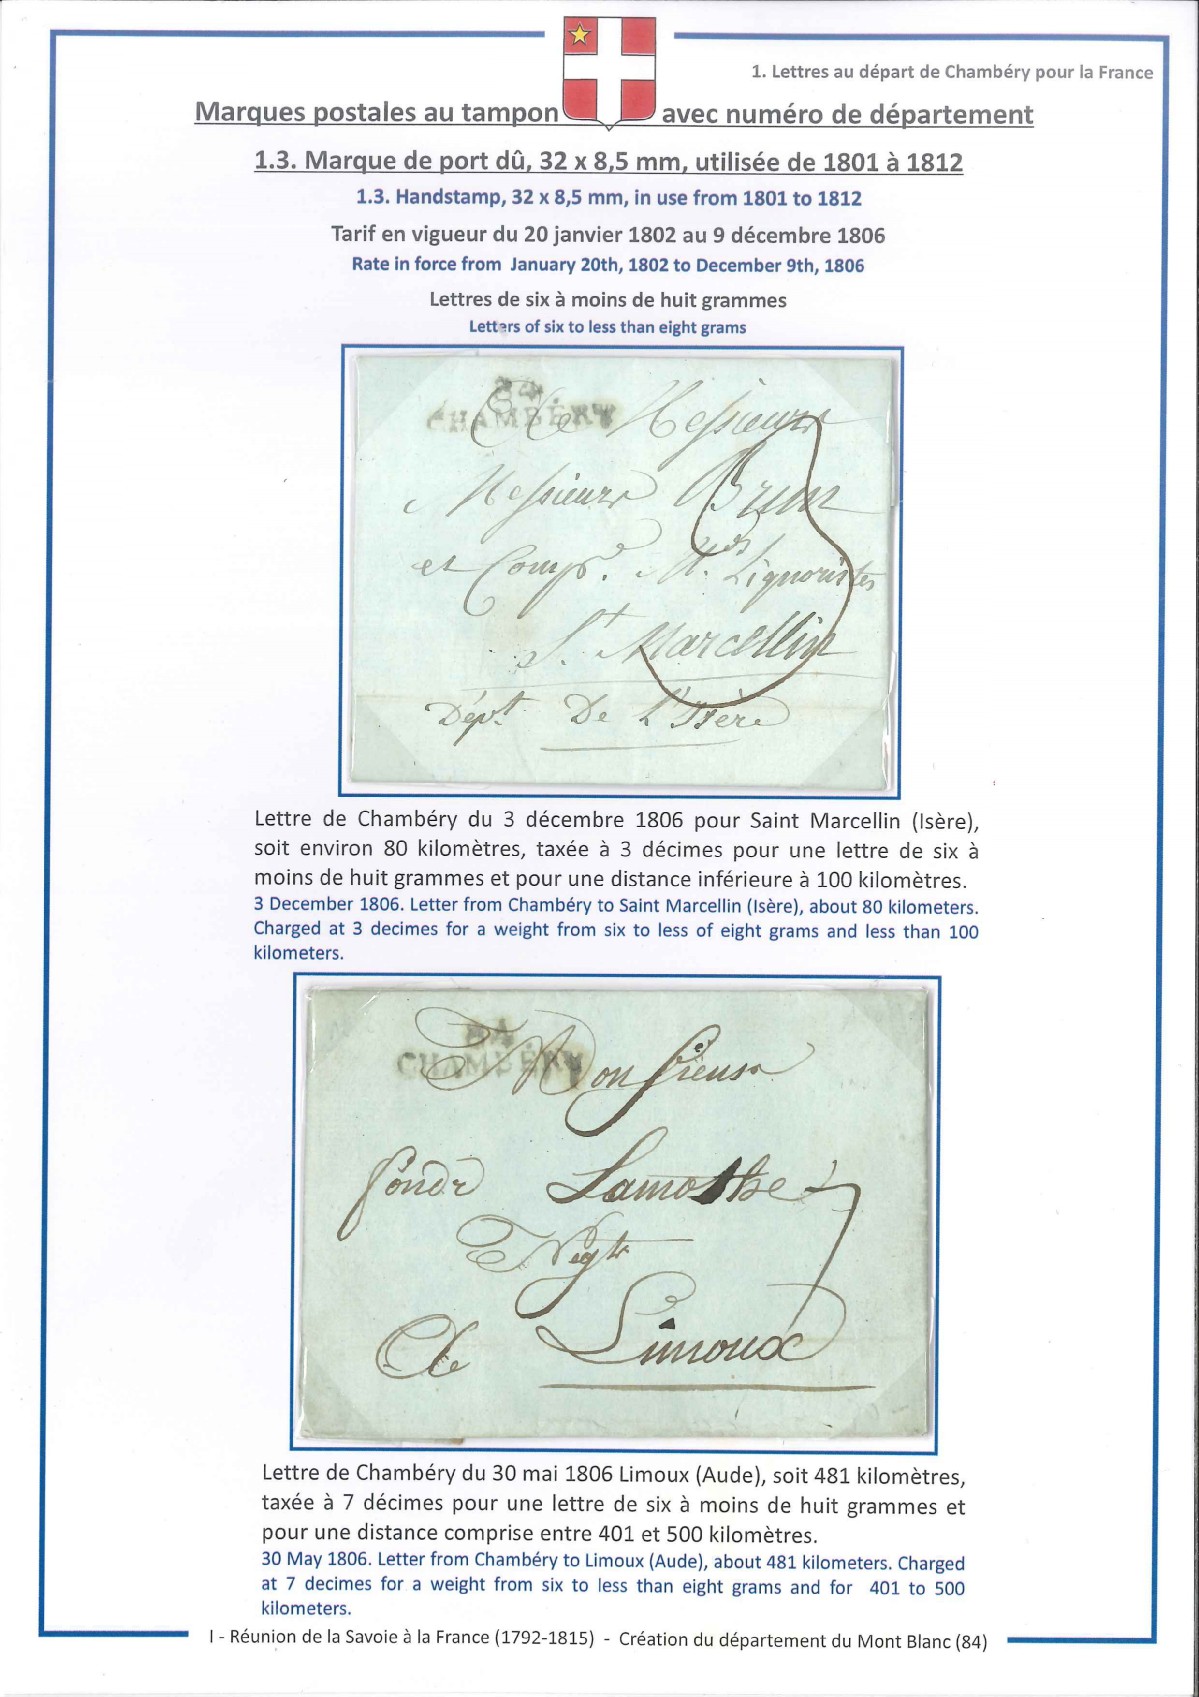 1. Lettres au départ de Chambéry pour la France
Marques postales au tampon avec numéro de département
1.3. Marque de port dû, 32 x 8,5 mm, utilisée de 1801 à 1812
1.3. Handstamp, 32 x 8,5 mm, in use from 1801 to 1812
Tarif en vigueur du 20 janvier 1802 au 9 décembre 1806
Rate in force from January 20th, 1802 to December 9th, 1806
Lettres de six à moins de huit grammes
Letters of six to less than eight grams
84
CHAMBÉRY
A Messieurs
Messieurs Brun
et Comp.e M.ds Liquoristes
S.t Marcellin
Dép.t De L'Isère
3
Lettre de Chambéry du 3 décembre 1806 pour Saint Marcellin (Isère),
soit environ 80 kilomètres, taxée à 3 décimes pour une lettre de six à
moins de huit grammes et pour une distance inférieure à 100 kilomètres.
3 December 1806. Letter from Chambéry to Saint Marcellin (Isère), about 80 kilometers.
Charged at 3 decimes for a weight from six to less of eight grams and less than 100
kilometers.
84
CHAMBÉRY
Monsieur
Lamothe
7
Negt
A Limoux
Lettre de Chambéry du 30 mai 1806 Limoux (Aude), soit 481 kilomètres,
taxée à 7 décimes pour une lettre de six à moins de huit grammes et
pour une distance comprise entre 401 et 500 kilomètres.
30 May 1806. Letter from Chambéry to Limoux (Aude), about 481 kilometers. Charged
at 7 decimes for a weight from six to less than eight grams and for 401 to 500
kilometers.
I - Réunion de la Savoie à la France (1792-1815) - Création du département du Mont Blanc (84)